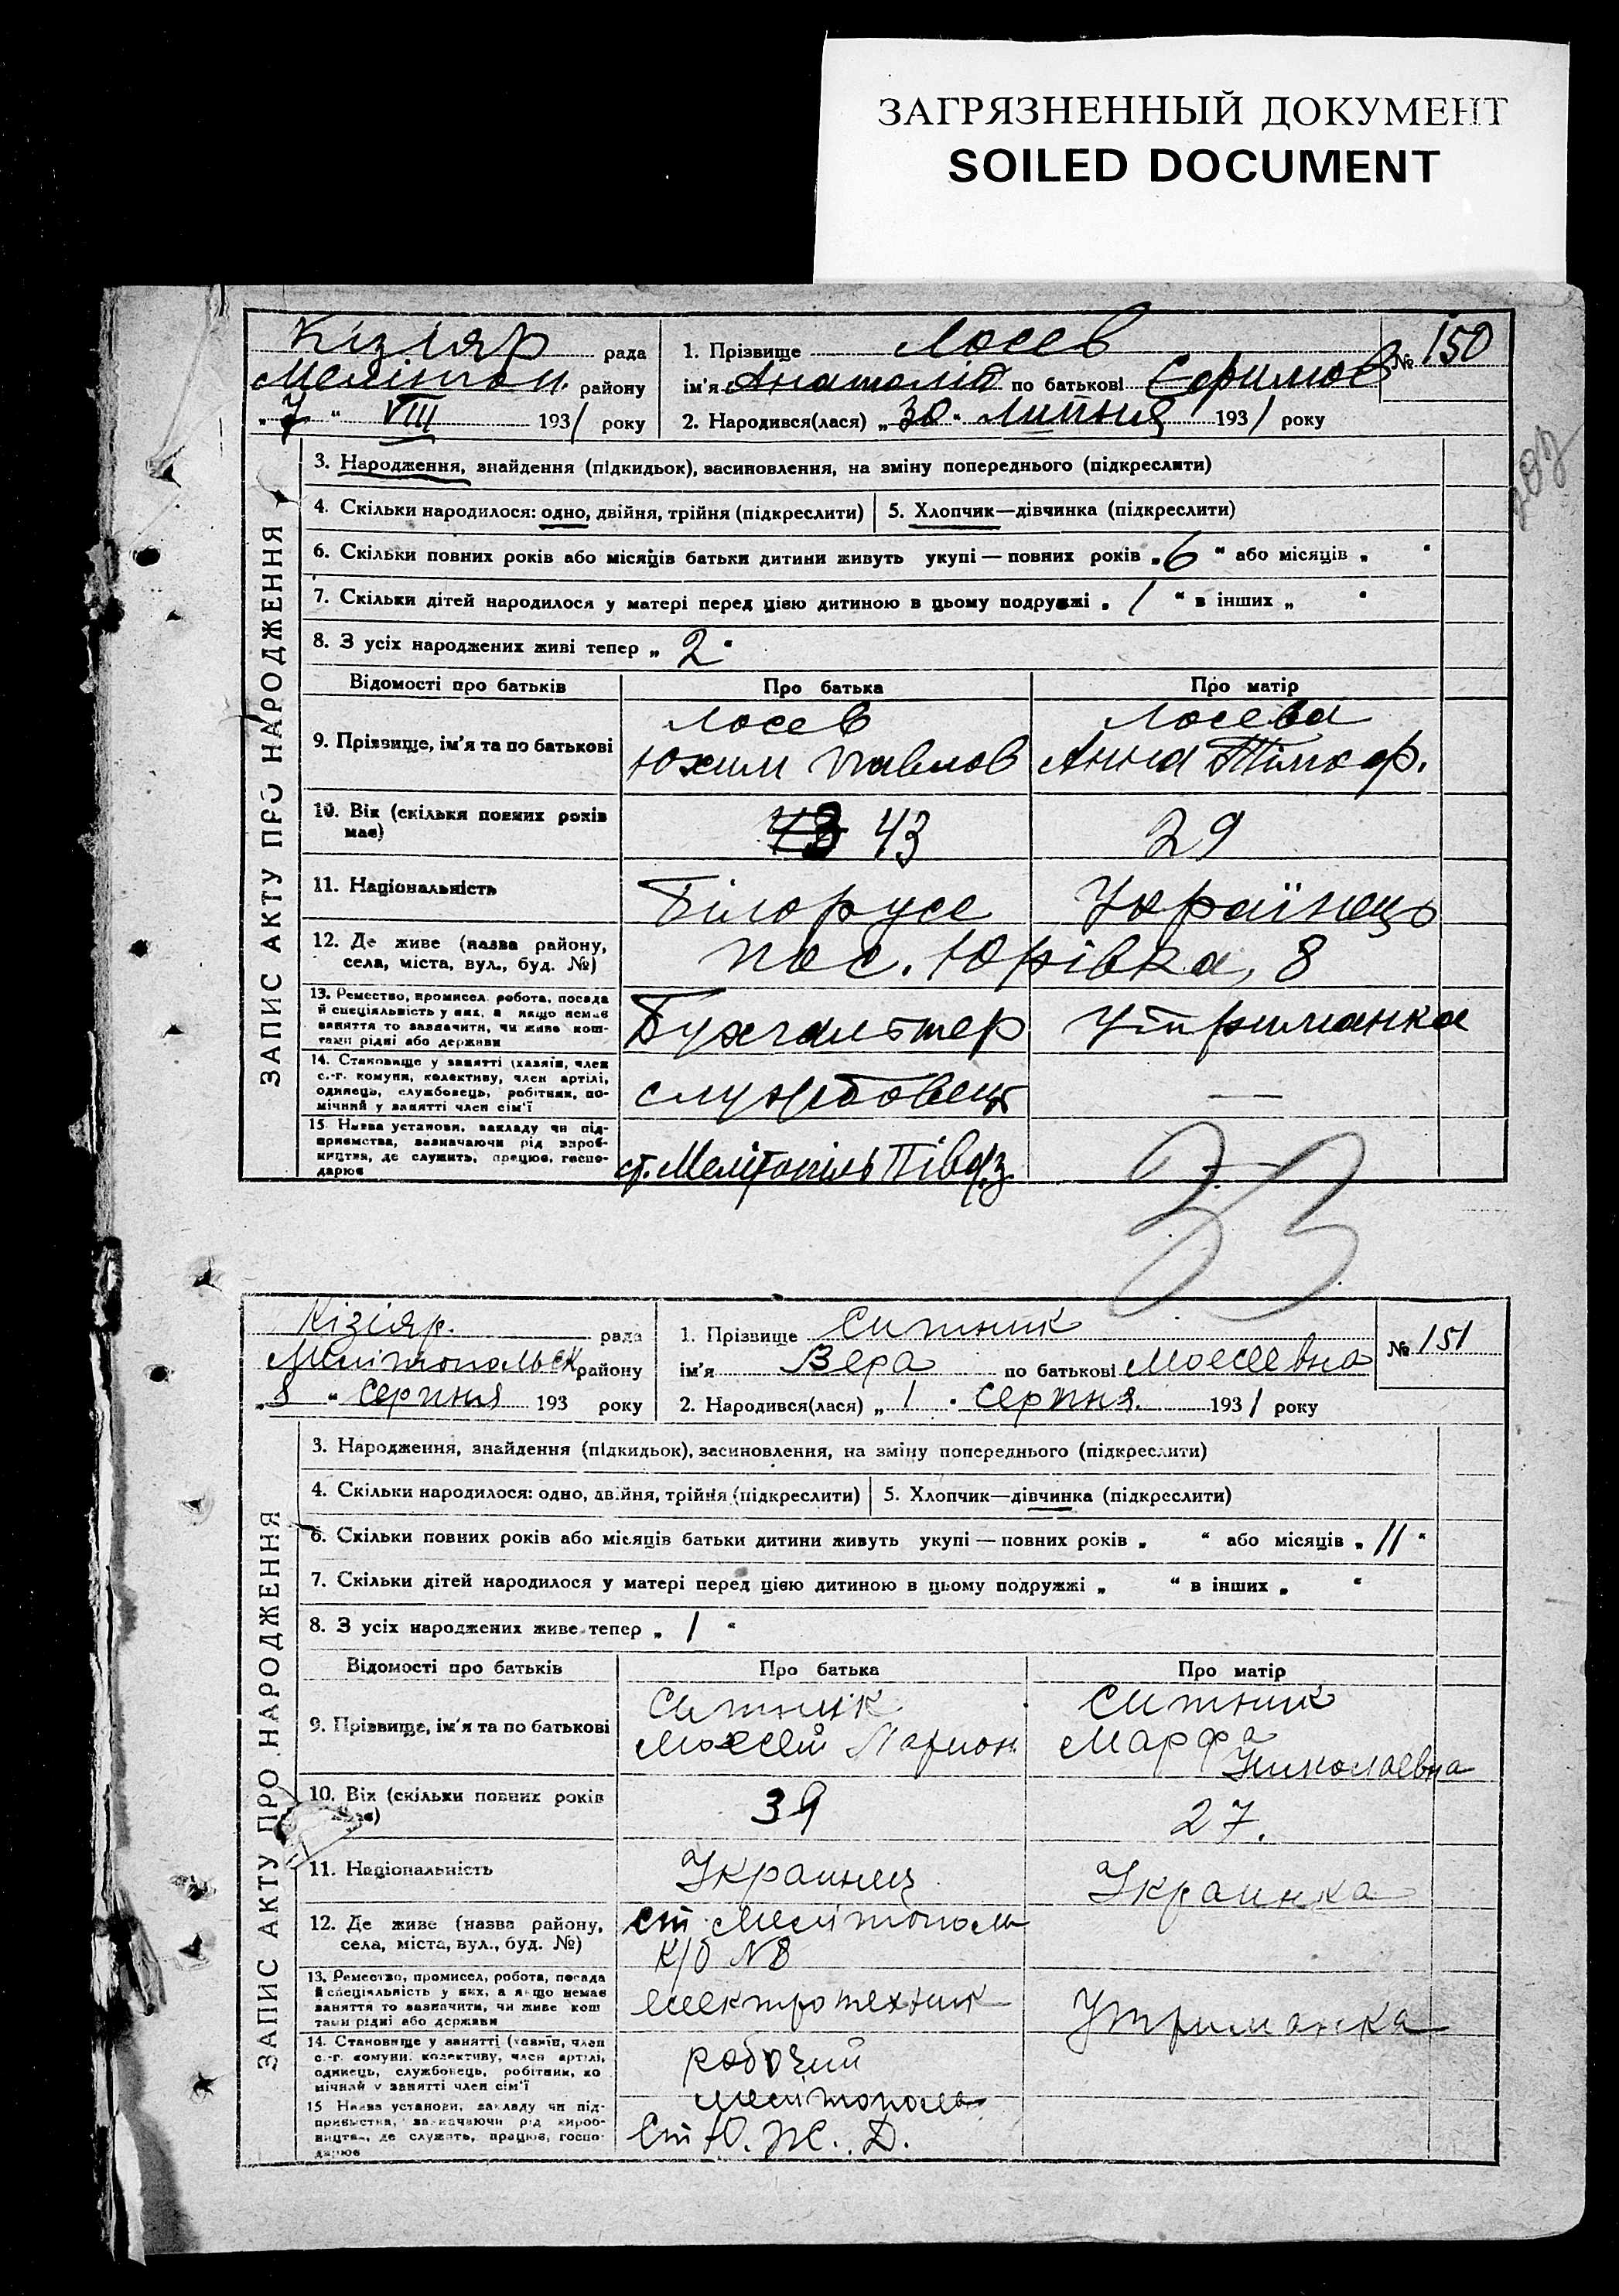 ЗАГРЯЗНЕННЫЙ ДОКУМЕНТ
SOILED DOCUMENT
ЗАПИС АКТУ ПРО НАРОДЖЕННЯ
Кізіяр рада
Меліtoп. району
„7“ VIII 1931 року
1. Прізвище Лосев
№ 150
ім'я Анатолій по батькові Єфимов
2. Народився(лася) „30“ Липня 1931 року
3. Народження, знайдення (підкидьок), засиновлення, на зміну попереднього (підкреслити)
4. Скільки народилося: одно, двійня, трійня (підкреслити) 5. Хлопчик—дівчинка (підкреслити)
6. Скільки повних років або місяців батьки дитини живуть укупі — повних років „6“ або місяців „ “
7. Скільки дітей народилося у матері перед цією дитиною в цьому подружжі „1“ в інших „ “
8. З усіх народжених живі тепер „2“
Відомості про батьків Про батька Про матір
9. Прізвище, ім'я та по батькові
Лосев Лосева
Юхим Павлов Анна Тімоф.
10. Вік (скільки повних років має)
43 29
11. Національність
Білорусс Українець
12. Де живе (назва району,
села, міста, вул., буд. №)
пос. Юрівка, 8
13. Ремество, промисел, робота, посада
й спеціяльність у них, а якщо немає
заняття то зазначити, чи живе кош-
тами рідні або держави
Бухгальтер Утриманка
14. Становище у занятті (хазяїн, член
с.-г. комуни, колективу, член артілі,
одинець, службовець, робітник, по-
мічний у занятті член сім'ї
службовець —
15. Назва установи, закладу чи під-
приємства, зазначаючи рід вироб-
ництва, де служить, працює, госпо-
дарює
ст. Мелітопіль Півд.з.
33
ЗАПИС АКТУ ПРО НАРОДЖЕННЯ
Кізіяр. рада
Мелітопольськ району
„8“ серпня 193 року
1. Прізвище Ситник
№ 151
ім'я Вера по батькові Моисеевна
2. Народився(лася) „1“ серпня. 1931 року
3. Народження, знайдення (підкидьок), засиновлення, на зміну попереднього (підкреслити)
4. Скільки народилося: одно, двійня, трійня (підкреслити) 5. Хлопчик—дівчинка (підкреслити)
6. Скільки повних років або місяців батьки дитини живуть укупі — повних років „ “ або місяців „11“
7. Скільки дітей народилося у матері перед цією дитиною в цьому подружжі „ “ в інших „ “
8. З усіх народжених живе тепер „1“
Відомості про батьків Про батька Про матір
9. Прізвище, ім'я та по батькові
Ситник Ситник
Моисей Ларион Марфа
Николаевна
10. Вік (скільки повних років
39 27.
11. Національність
Украинец Украинка
12. Де живе (назва району,
села, міста, вул., буд. №)
ст Мелітополь
к/б №8
13. Ремество, промисел, робота, посада
й спеціяльність у них, а якщо немає
заняття то зазначити, чи живе кош
тами рідні або держави
електротехник Утриманка
14. Становище у занятті (хазяїн, член
с.-г. комуни, колективу, член артілі,
одинець, службовець, робітник, по
мічний у занятті член сім'ї
рабочий
15 Назва установи, закладу чи під-
приємства, зазначаючи рід вироб-
ництва, де служить, працює, госпо-
дарює
Мелітополь
Ст Ю. Ж. Д.